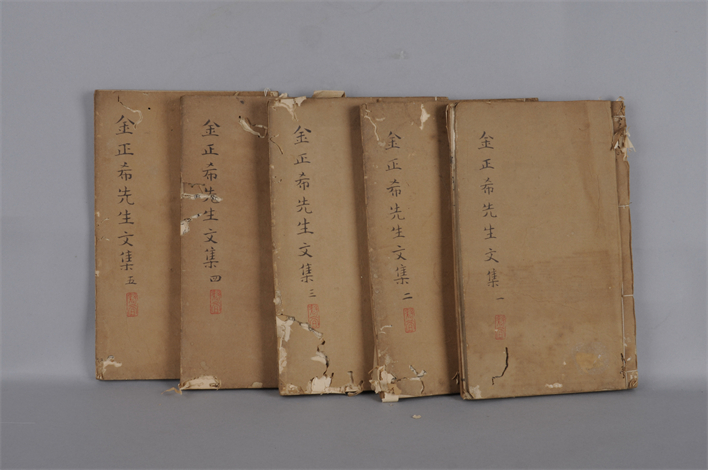 金正希先生文集一
金正希先生文集二
金正希先生文集三
金正希先生文集四
金正希先生文集五